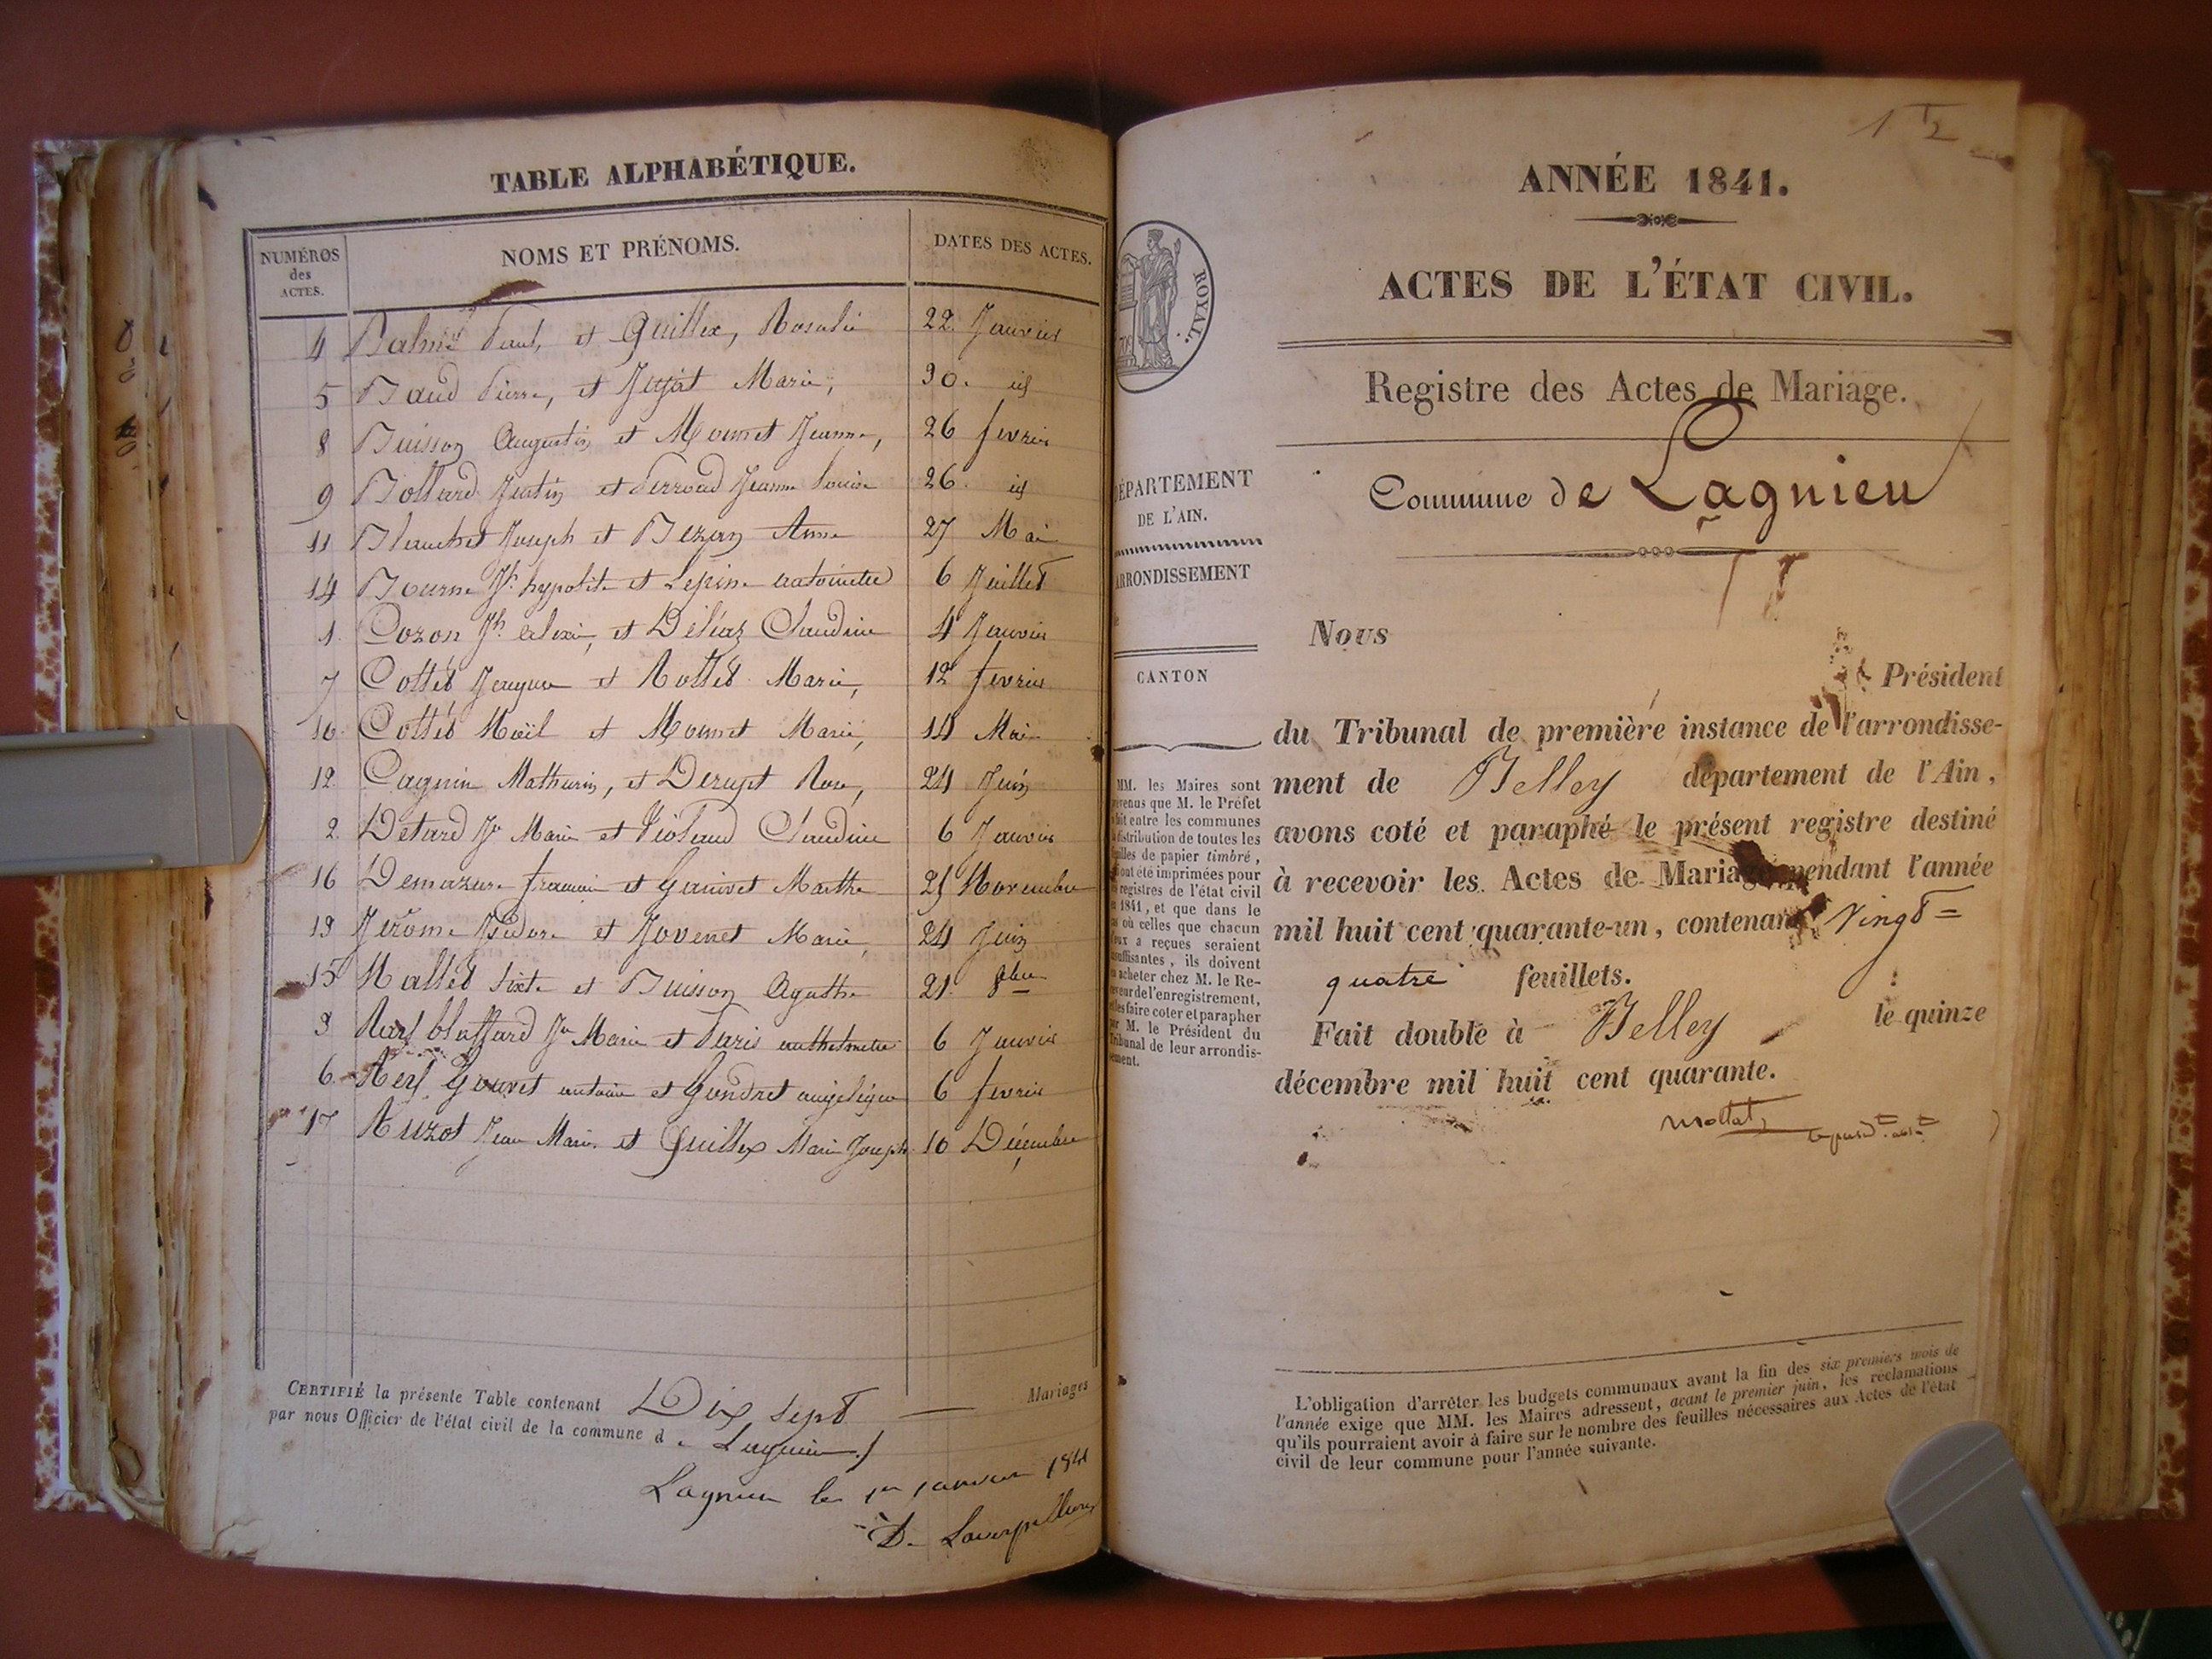 TABLE ALPHABÉTIQUE.
NUMÉROS des ACTES. NOMS ET PRÉNOMS. DATES DES ACTES.
4 Paul, et Guillex, Rosalie 22 Janvier
5 Baud Pierre, et Jujat Marie, 30. id
8 Buisson Augustin et Mounet Jeanne, 26 fevrier
9 Bollard Justin et Perroud Jeanne Louise 26. id
11 Blanchet Joseph et Bezan Anne 27 Mai
14 Bourne Jh hypolite et Lepine antoinette 6 Juillet
1. Cozon Jh alexis, et Déléaz Claudine 4 Janvier
7 Cottet Jacques et Rottet Marie, 12 fevrier
10 Cottet Noël et Mounet Marie, 14 Mai
12. Cagnin Mathurin, et Derupt Rose, 24 Juin
2. Detard Jn Marie et Violand Claudine 6 Janvier
16 Demazure francois et Ganivet Marthe 25 Novembre
13 Jérôme Isidore et Jovenet Marie, 24 Juin
15 Nallet Sixte et Buisson Agathe 21. 8bre
3 Jn Marie et Paris 6 Janvier
6. Gouvet antoine et Gondret angelique 6 fevrier
17 Ruzot Jean Marie et Guillex Marie Joseph 10 Décembre
CERTIFIÉ la présente Table contenant Dix Sept — Mariages
par nous Officier de l'état civil de la commune de Lagnieu
Lagnieu le 1er janvier 1841
1
ANNÉE 1841.
ACTES DE L'ÉTAT CIVIL.
ROYAL.
Registre des Actes de Mariage.
Commune de Lagnieu
DÉPARTEMENT
DE L'AIN.
ARRONDISSEMENT
CANTON
MM. les Maires sont
prévenus que M. le Préfet
fait entre les communes
la distribution de toutes les
feuilles de papier timbré,
qui ont été imprimées pour
les registres de l'état civil
de 1841, et que dans le
cas où celles que chacun
d'eux a reçues seraient
insuffisantes, ils doivent
en acheter chez M. le Re-
ceveur de l'enregistrement,
et les faire coter et parapher
par M. le Président du
Tribunal de leur arrondis-
sement.
Nous
Président
du Tribunal de première instance de l'arrondisse-
ment de Belley département de l'Ain,
avons coté et paraphé le présent registre destiné
à recevoir les Actes de Mariage pendant l'année
mil huit cent quarante-un, contenant Vingt =
quatre feuillets.
Fait double à Belley le quinze
décembre mil huit cent quarante.
L'obligation d'arrêter les budgets communaux avant la fin des six premiers mois de
l'année exige que MM. les Maires adressent, avant le premier juin, les réclamations
qu'ils pourraient avoir à faire sur le nombre des feuilles nécessaires aux Actes de l'état
civil de leur commune pour l'année suivante.